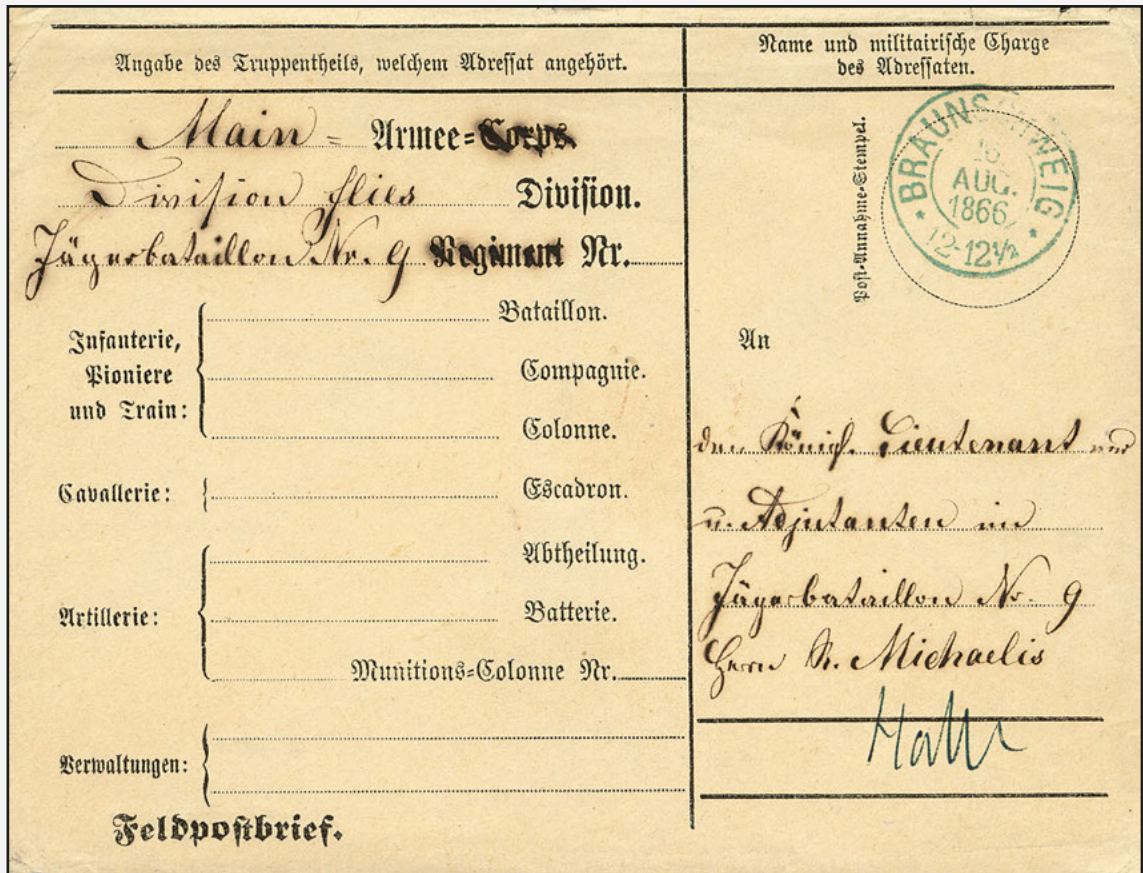 Angabe des Truppentheils, welchem Adressat angehört.
Main = Armee=Corps
Division flies Division.
Jägerbataillon Nr. 9 Regiment Nr.
Infanterie,
Pioniere
und Train:
Bataillon.
Compagnie.
Colonne.
Cavallerie:
Escadron.
Artillerie:
Abtheilung.
Batterie.
Munitions=Colonne Nr.
Verwaltungen:
Feldpostbrief.
Name und militairische Charge
des Adressaten.
Post-Annahme-Stempel.
BRAUNSCHWEIG
AUG.
1866
12-12½
An
den Königl. Lieutenant und
u. Adjutanten im
Jägerbataillon Nr. 9
Herrn R. Michaelis